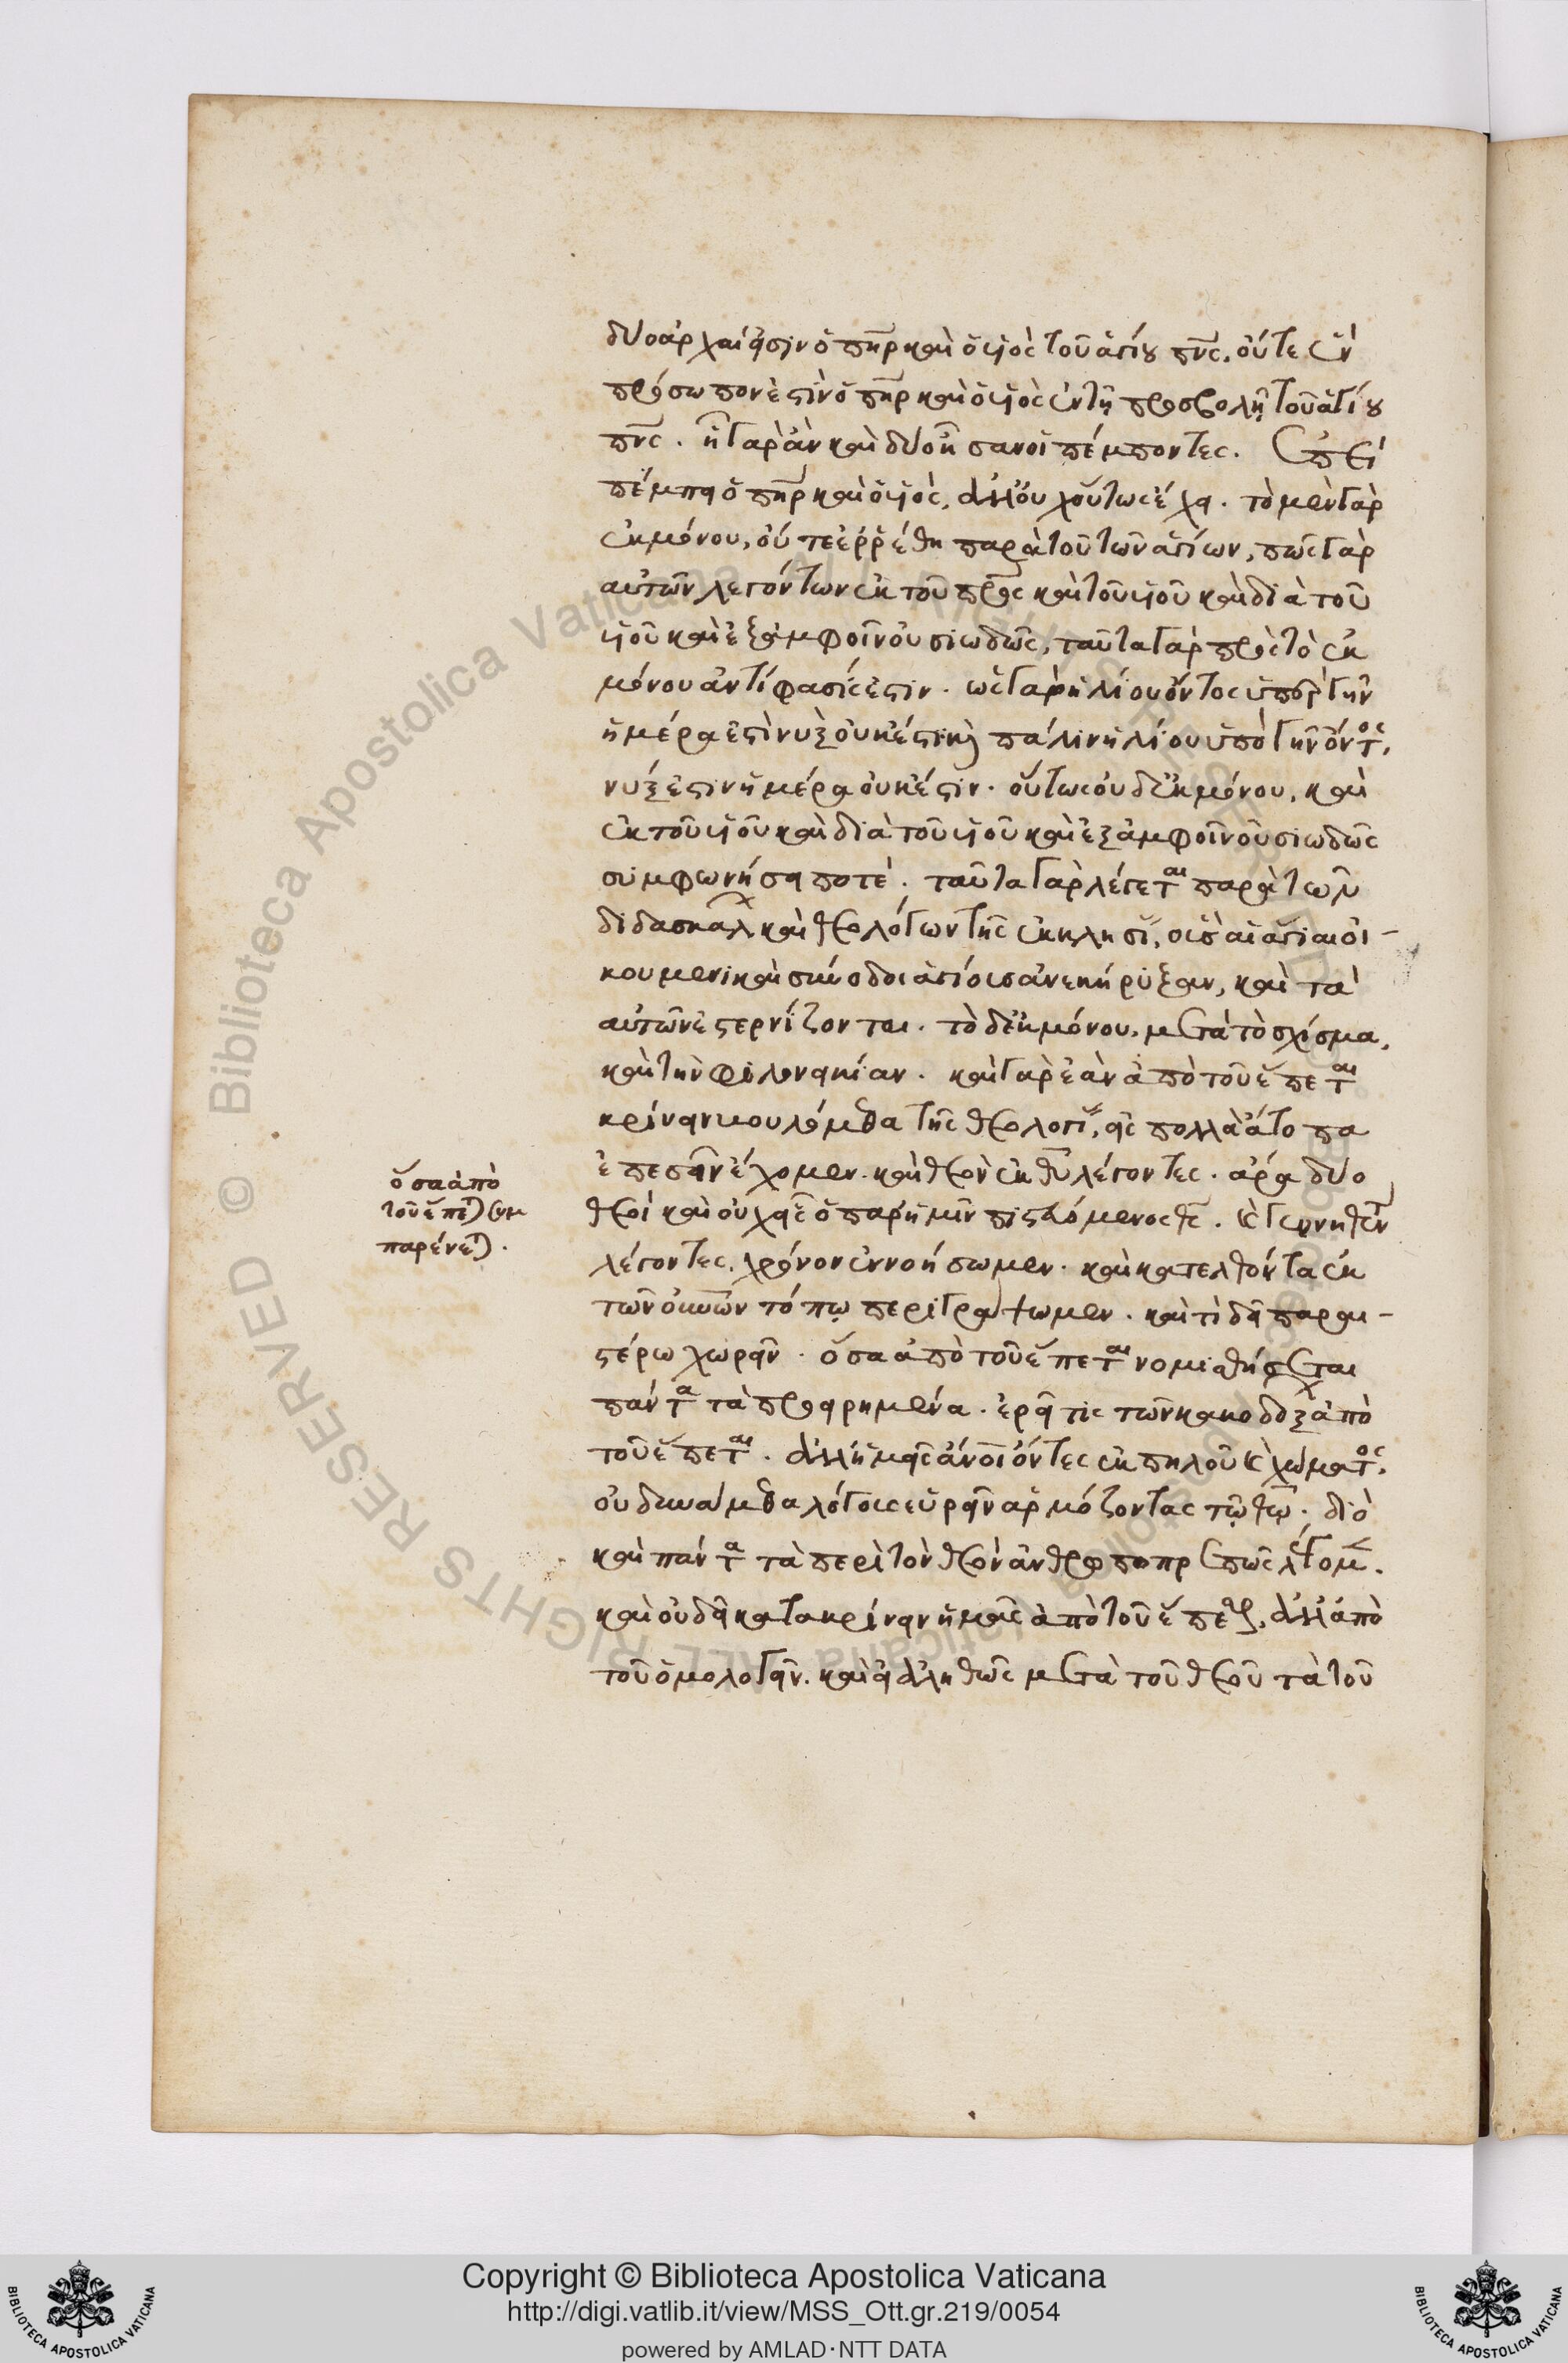 δύο ἀρχαί εἰσιν ὁ πηρ καὶ ὁ υἱὸς τοῦ ἁγίου πνς, οὔτε ἓν
πρόσωπον ἐστὶν ὁ πηρ καὶ ὁ υἱὸς ἐν τῇ προσβολῇ τοῦ ἁγίου
πνς. ἢ γὰρ ἂν καὶ δύο ἦσαν οἱ πέμποντες. ἐπεὶ
πέμπει ὁ πηρ καὶ ὁ υἱὸς, ἀλλ' οὐχ οὕτως ἔχει. τὸ μὲν γὰρ
ἐκ μόνου, οὔτε ἐρρέθη παρὰ τούτων ἁγίων, πῶς γὰρ
αὐτῶν λεγόντων ἐκ τοῦ πρς καὶ τοῦ υἱοῦ καὶ διὰ τοῦ
υἱοῦ καὶ ἐξ ἀμφοῖν οὐσιωδῶς, ταῦτα γὰρ πρὸς τὸ ἐκ
μόνου ἀντίφασίς ἐστιν. ὡς γὰρ ἡλίου ὄντος ὑπὲρ γῆν
ἡμέρα ἐστὶ νυξ οὐκ έστι καὶ πάλιν ἡλίου ὑπὸ γῆν ὄντος,
νύξ ἐστιν ἡμέρα οὐκ έστιν. οὕτως οὐδ' ἐκ μόνου, καὶ
ἐκ τοῦ υἱοῦ καὶ διὰ τοῦ υἱοῦ καὶ ἐξ ἀμφοῖν οὐσιωδῶς
συμφωνήσει ποτέ. ταῦτα γὰρ λέγεται παρὰ τῶν
διδασκάλων καὶ θεολόγων τῆς ἐκκλησίας, οὓς αἱ ἅγιαι οἰ-
κουμενικαὶ σύνοδοι ἁγίους ἀνεκήρυξαν, καὶ τὰ
αὐτῶν ἐστερνίζονται. τὸ δ' ἐκ μόνου, μετὰ τὸ σχίσμα,
καὶ τὴν φιλονεικίαν. καὶ γὰρ ἐὰν ἀπὸ τοῦ ἕπεται
κρίνειν βουλόμεθα τῆς θεολογίας, εἰς πολλὰ ἄτοπα
ἐπεσεῖν ἔχομεν. καὶ θεὸν ἐκ θυ λέγοντες. ἆρα δύο
θεοὶ καὶ οὐχ εἷς ὁ παρ' ἡμῖν πιστευόμενος θς. καὶ γεννηθέντα
λέγοντες, χρόνον ἐννοήσωμεν. καὶ κατελθόντα ἐκ
τῶν οὐνῶν τόπῳ περιγράψωμεν. καὶ τί δεῖ παραι-
τέρω χωρεῖν. ὅσα ἀπὸ τοῦ ἕπεται νομισθήσεται
πάντα τὰ προειρημένα. ἐρεῖ τις τῶν κακοδόξων ἀπὸ
τοῦ ἕπεται. ἀλλ' ἡμεῖς ἄνοι ὄντες ἐκ πηλοῦ καὶ χώματος,
οὐ δυνάμεθα λόγους εὑρεῖν ἁρμόζοντας τῷ θῷ. διὸ
καὶ πάντα τὰ περὶ τὸν θεὸν ἀνθρωποπρεπῶς λέγομεν.
καὶ οὐ δεῖ κατακρίνειν ἡμᾶς ἀπὸ τοῦ ἕπεται, ἀλλ' ἀπὸ
τοῦ ὁμολογεῖν. καὶ εἰ ἀληθῶς μετὰ τοῦ θεοῦ τὰ τοῦ
ὅσα ἀπὸ
τοῦ ἕπεται
Copyright © Biblioteca Apostolica Vaticana
http://digi.vatlib.it/view/MSS_Ott.gr.219/0054
powered by AMLAD·NTT DATA
BIBLIOTECA APOSTOLICA VATICANA
BIBLIOTECA APOSTOLICA VATICANA